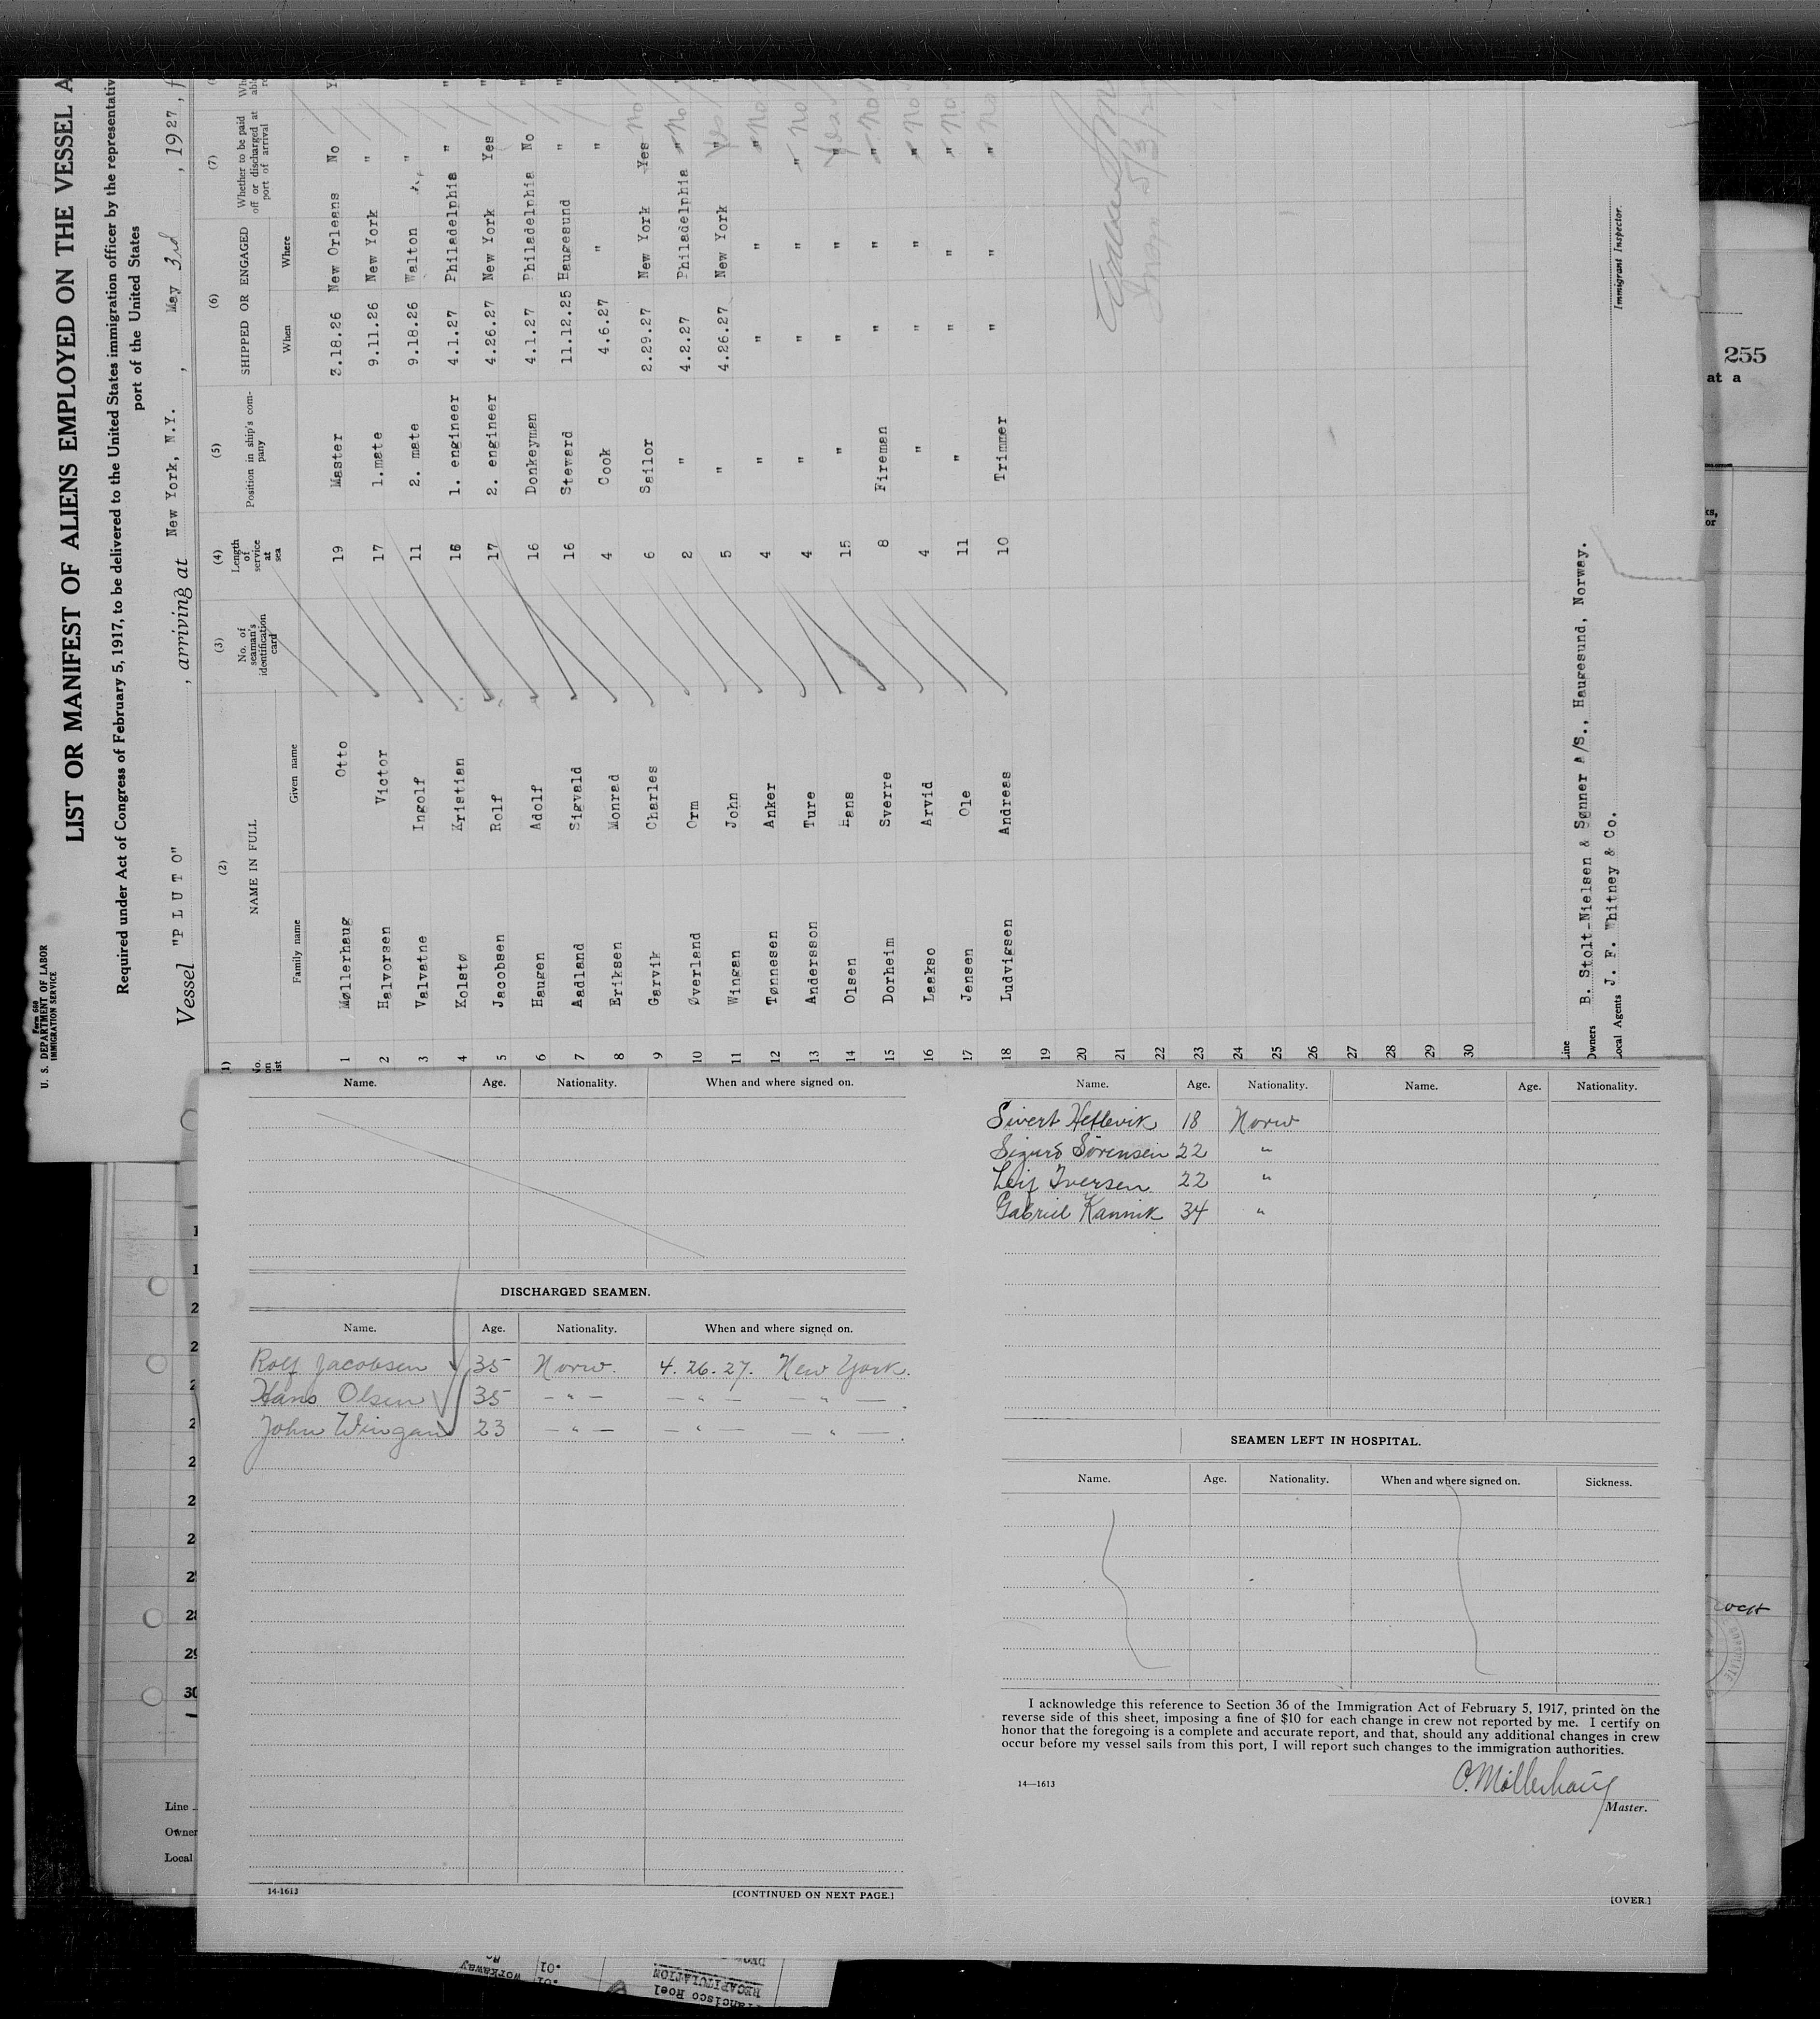 Form 680
U. S. DEPARTMENT OF LABOR
IMMIGRATION SERVICE
LIST OR MANIFEST OF ALIENS EMPLOYED ON THE VESSEL A
Required under Act of Congress of February 5, 1917, to be delivered to the United States immigration officer by the representativ
port of the United States
Vessel "P L U T O" , arriving at New York, N.Y. , May 3rd , 1927, f
(1) (2) (3) (4) (5) (6) (7)
No. on list NAME IN FULL No. of seaman's identification card Length of service at sea Position in ship's company SHIPPED OR ENGAGED Whether to be paid off or discharged at port of arrival
Family name Given name When Where
1 Møllerhaug Otto 19 Master 3.18.26 New Orleans No
2 Halvorsen Victor 17 1.mate 9.11.26 New York "
3 Valvatne Ingolf 11 2. mate 9.18.26 Walton "
4 Kolstø Kristian 16 1. engineer 4.1.27 Philadelphia " "
5 Jacobsen Rolf 17 2. engineer 4.26.27 New York Yes "
6 Haugen Adolf 16 Donkeyman 4.1.27 Philadelphia No "
7 Aadland Sigvald 16 Steward 11.12.25 Haugesund " "
8 Eriksen Monrad 4 Cook 4.6.27 " "
9 Garvik Charles 6 Sailor 2.29.27 New York Yes No "
10 Øverland Orm 2 " 4.2.27 Philadelphia " No "
11 Wingan John 5 " 4.26.27 New York " Yes "
12 Tønnesen Anker 4 " " " " No "
13 Andersson Ture 4 " " " " No "
14 Olsen Hans 15 " " " " Yes "
15 Dorheim Sverre 8 Fireman " " " No "
16 Laakso Arvid 4 " " " " No "
17 Jensen Ole 11 " " " " No "
18 Ludvigsen Andreas 10 Trimmer " " " No "
19
20
21
22
23
24
25
26
27
28
29
30
5/3/2
Immigrant Inspector.
Line
Owners B. Stolt-Nielsen & Sønner A/S., Haugesund, Norway.
Local Agents J. F. Whitney & Co.
255
at a
ks,
or
Name. Age. Nationality. When and where signed on.
DISCHARGED SEAMEN.
Name. Age. Nationality. When and where signed on.
Rolf Jacobsen 35 Norw. 4. 26. 27. New York.
Hans Olsen 35 - " - - " - - " -
John Wingan 23 - " - - " - - " -
14-1613
[CONTINUED ON NEXT PAGE.]
Name. Age. Nationality. Name. Age. Nationality.
Sivert Heflevik 18 Norw
Sigurd Sörensen 22 "
Leif Iversen 22 "
Gabriel Kannik 34 "
SEAMEN LEFT IN HOSPITAL.
Name. Age. Nationality. When and where signed on. Sickness.
I acknowledge this reference to Section 36 of the Immigration Act of February 5, 1917, printed on the
reverse side of this sheet, imposing a fine of $10 for each change in crew not reported by me. I certify on
honor that the foregoing is a complete and accurate report, and that, should any additional changes in crew
occur before my vessel sails from this port, I will report such changes to the immigration authorities.
14—1613
O. Möllerhaug
Master.
[OVER.]
28
29
30
Line
Owner
Local
workaway
.01
RECAPITULATION
ancisco Roel